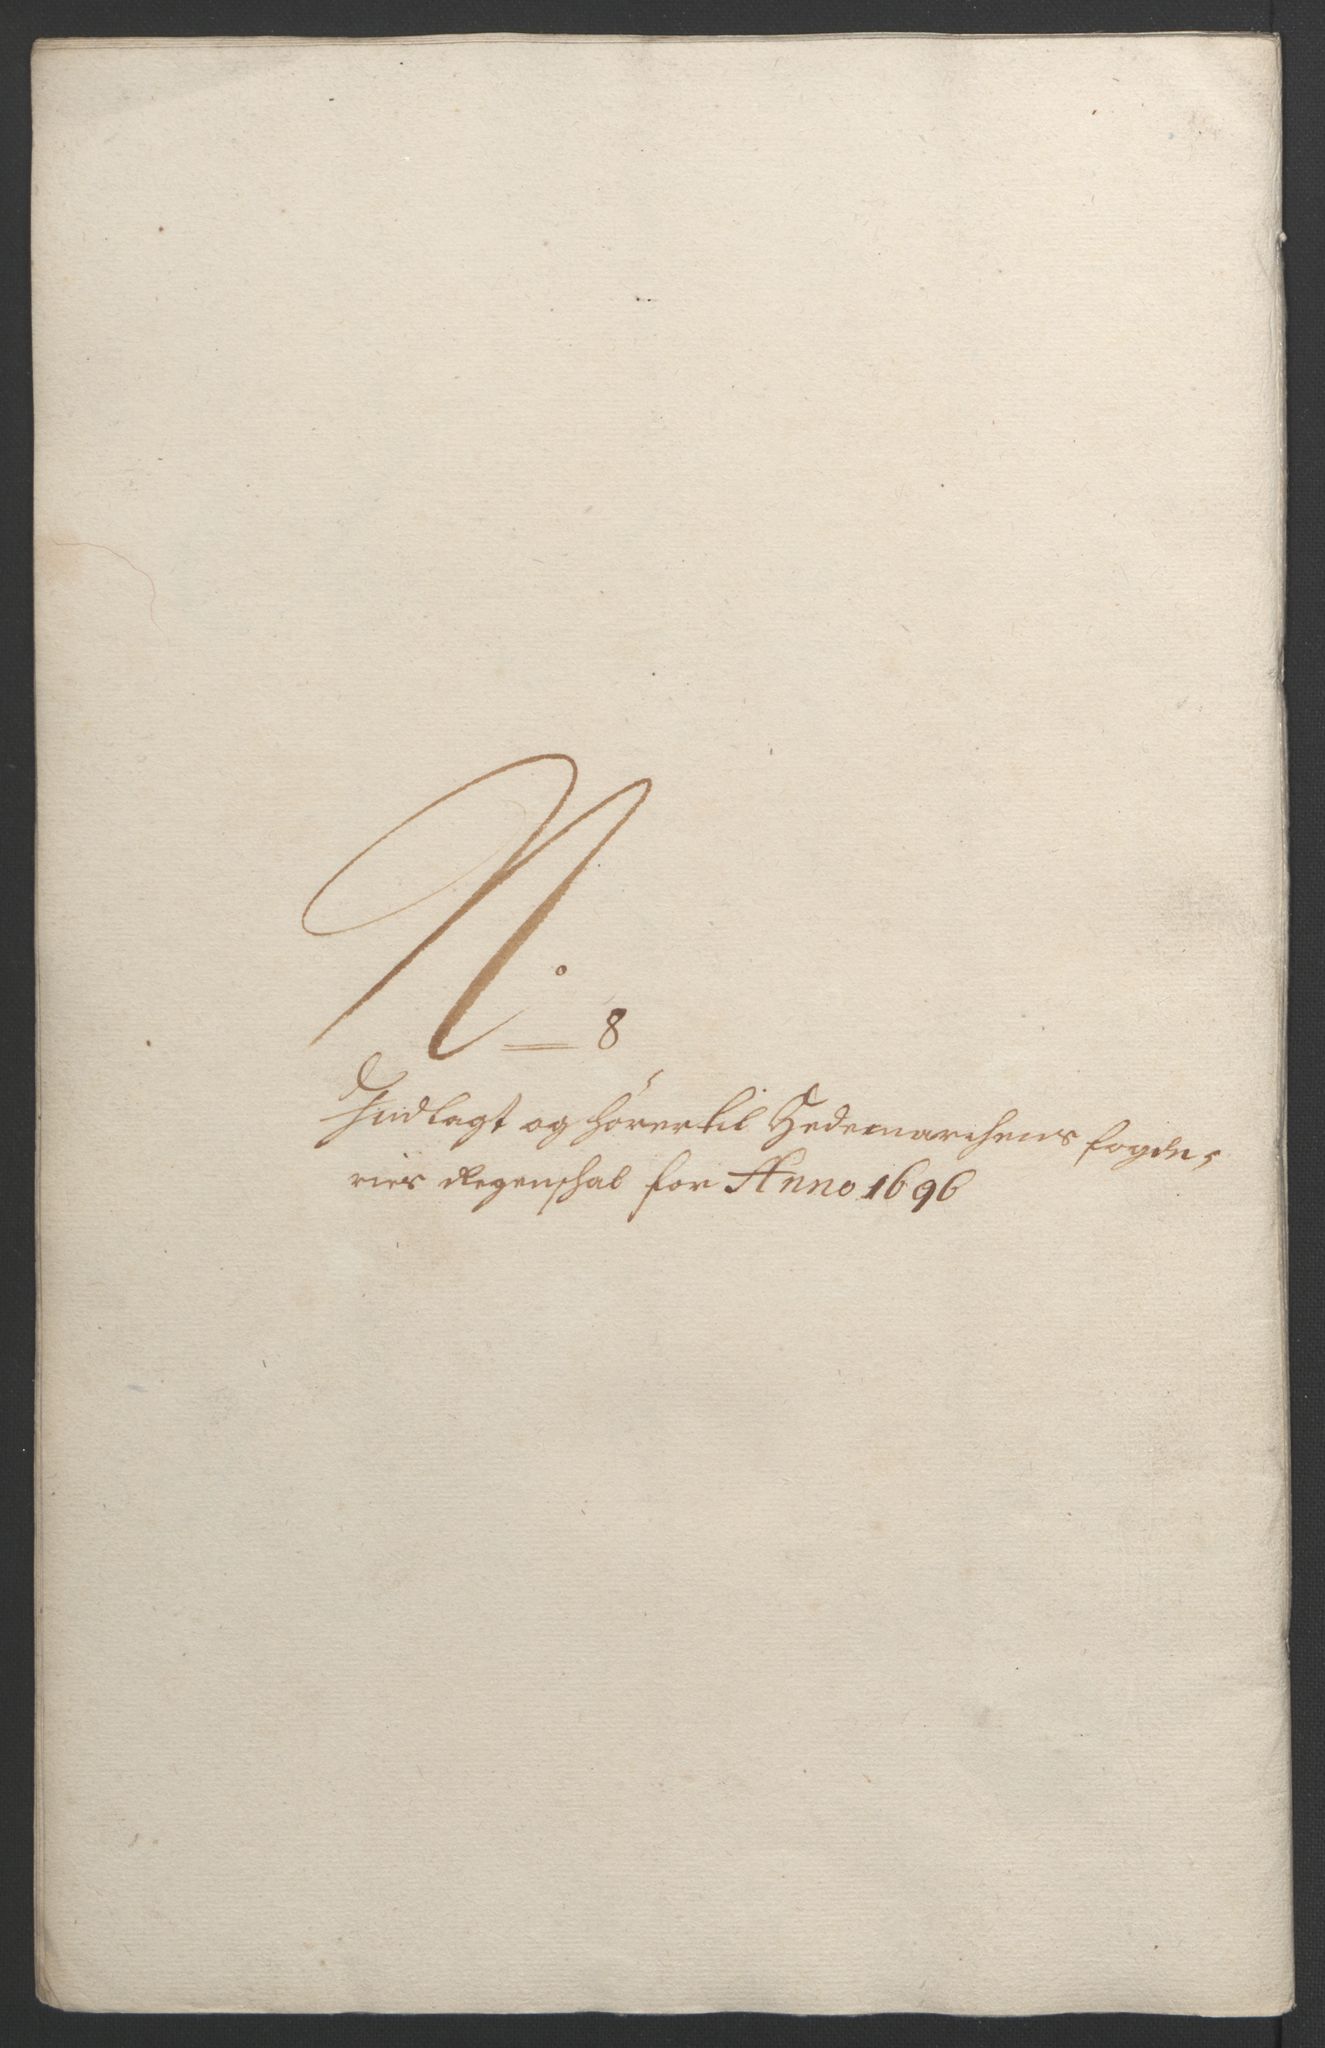 N.o 8
Indlagt og hörer til Hedemarchens fogde,
ries Regenschab for Anno 1696